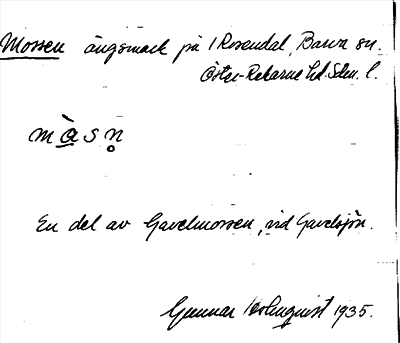 Mossen ängsmark på 1 Rosendal, Barva sn.
Öster-Rekarne hd. Sdm. l.
m à s n̥
En del av Gavelmossen, vid Gavelsjön.
Gunnar 1935.